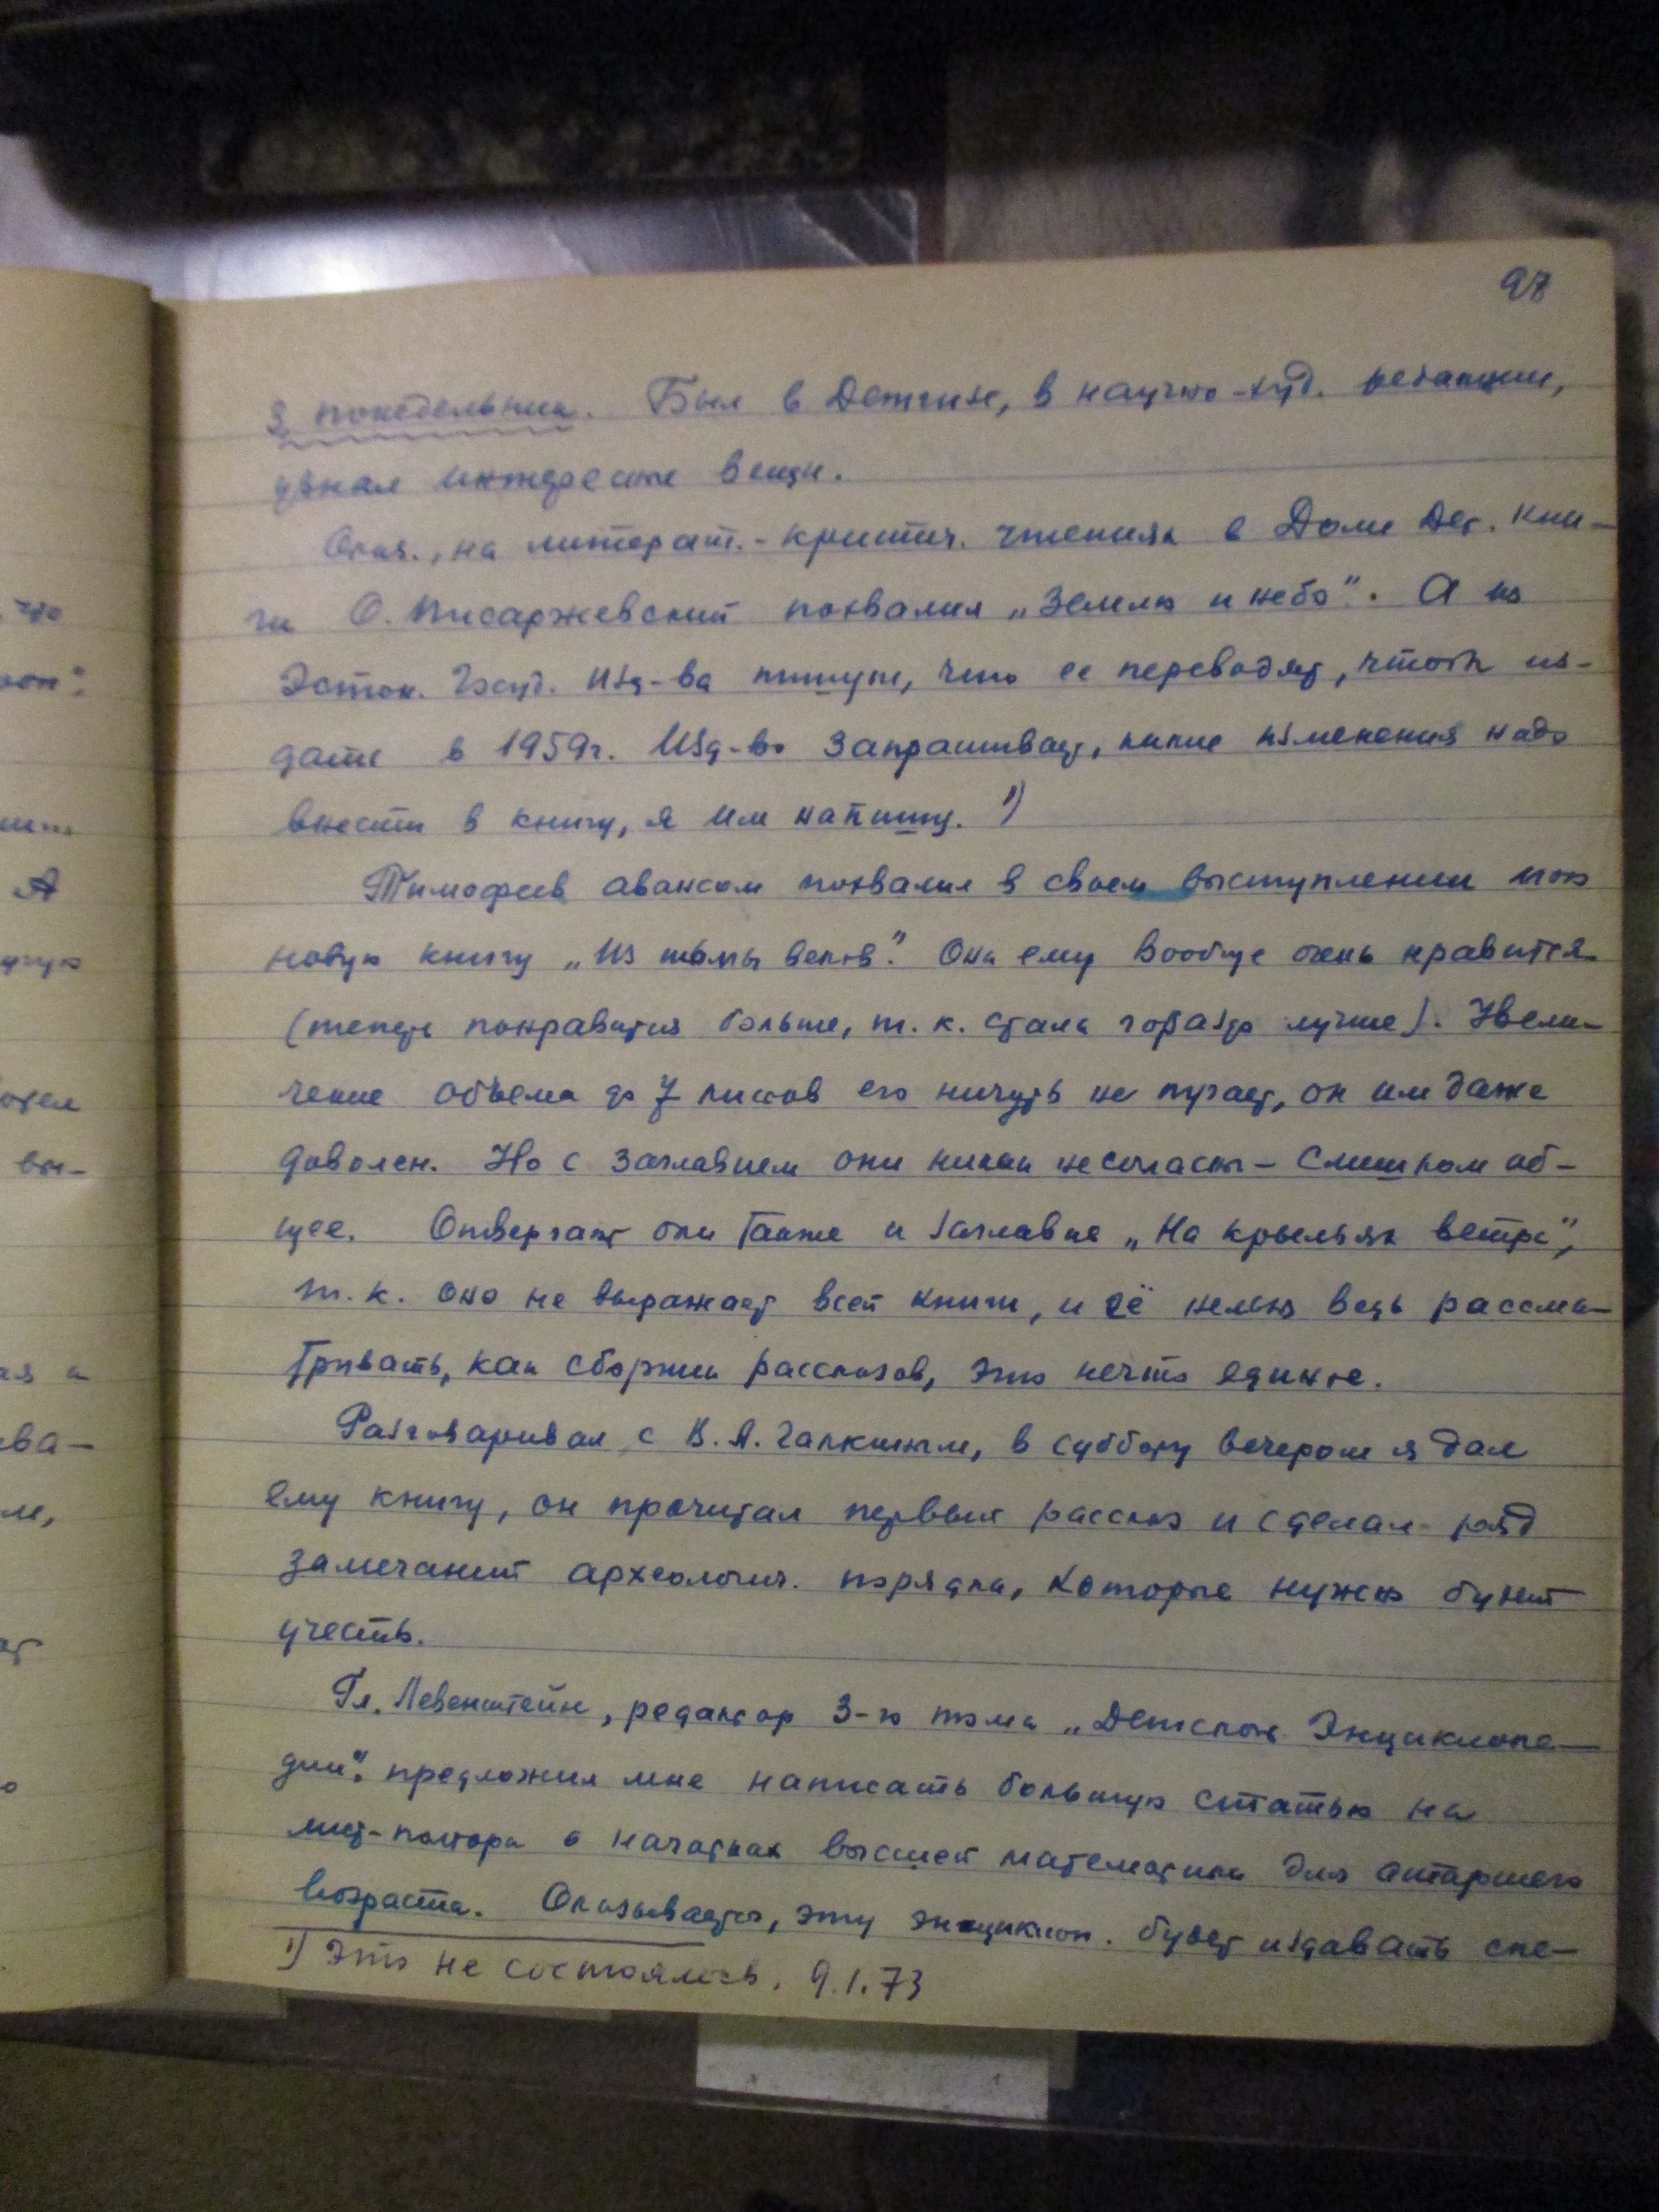 97
3, понедельник. Был в Детгизе, в научно-худ. редакции,
узнал интересные вещи.
Оказ., на литерат.-критич. чтениях в Доме Дет. кни-
ги О. Писаржевский похвалил „Землю и небо“. А из
Эстон. Госуд. Изд-ва пишут, что ее переводят, чтобы из-
дать в 1959г. Изд-во запрашивает, какие изменения надо
внести в книгу, я им напишу. 1)
Тимофеев авансом похвалил в своем выступлении мою
новую книгу „Из тьмы веков“. Она ему вообще очень нравится
(теперь понравится больше, т. к. стала гораздо лучше). Увели-
чение объема до 7 листов его ничуть не пугает, он им даже
доволен. Но с заглавием они никак не согласны – слишком об-
щее. Отвергают они также и заглавие „На крыльях ветра“,
т. к. оно не выражает всей книги, и её нельзя ведь рассма-
тривать, как сборник рассказов, это нечто единое.
Разговаривал с В. А. Галкиным, в субботу вечером я дал
ему книгу, он прочитал первый рассказ и сделал ряд
замечаний археологич. порядка, которые нужно будет
учесть.
Гл. Левенштейн, редактор 3-го тома „Детской Энциклопе-
дии“, предложил мне написать большую статью на
лист-полтора о начатках высшей математики для старшего
возраста. Оказывается, эту энциклоп. будет издавать спе-
1) Это не состоялось. 9.1.73
что
А
вы-
ва-